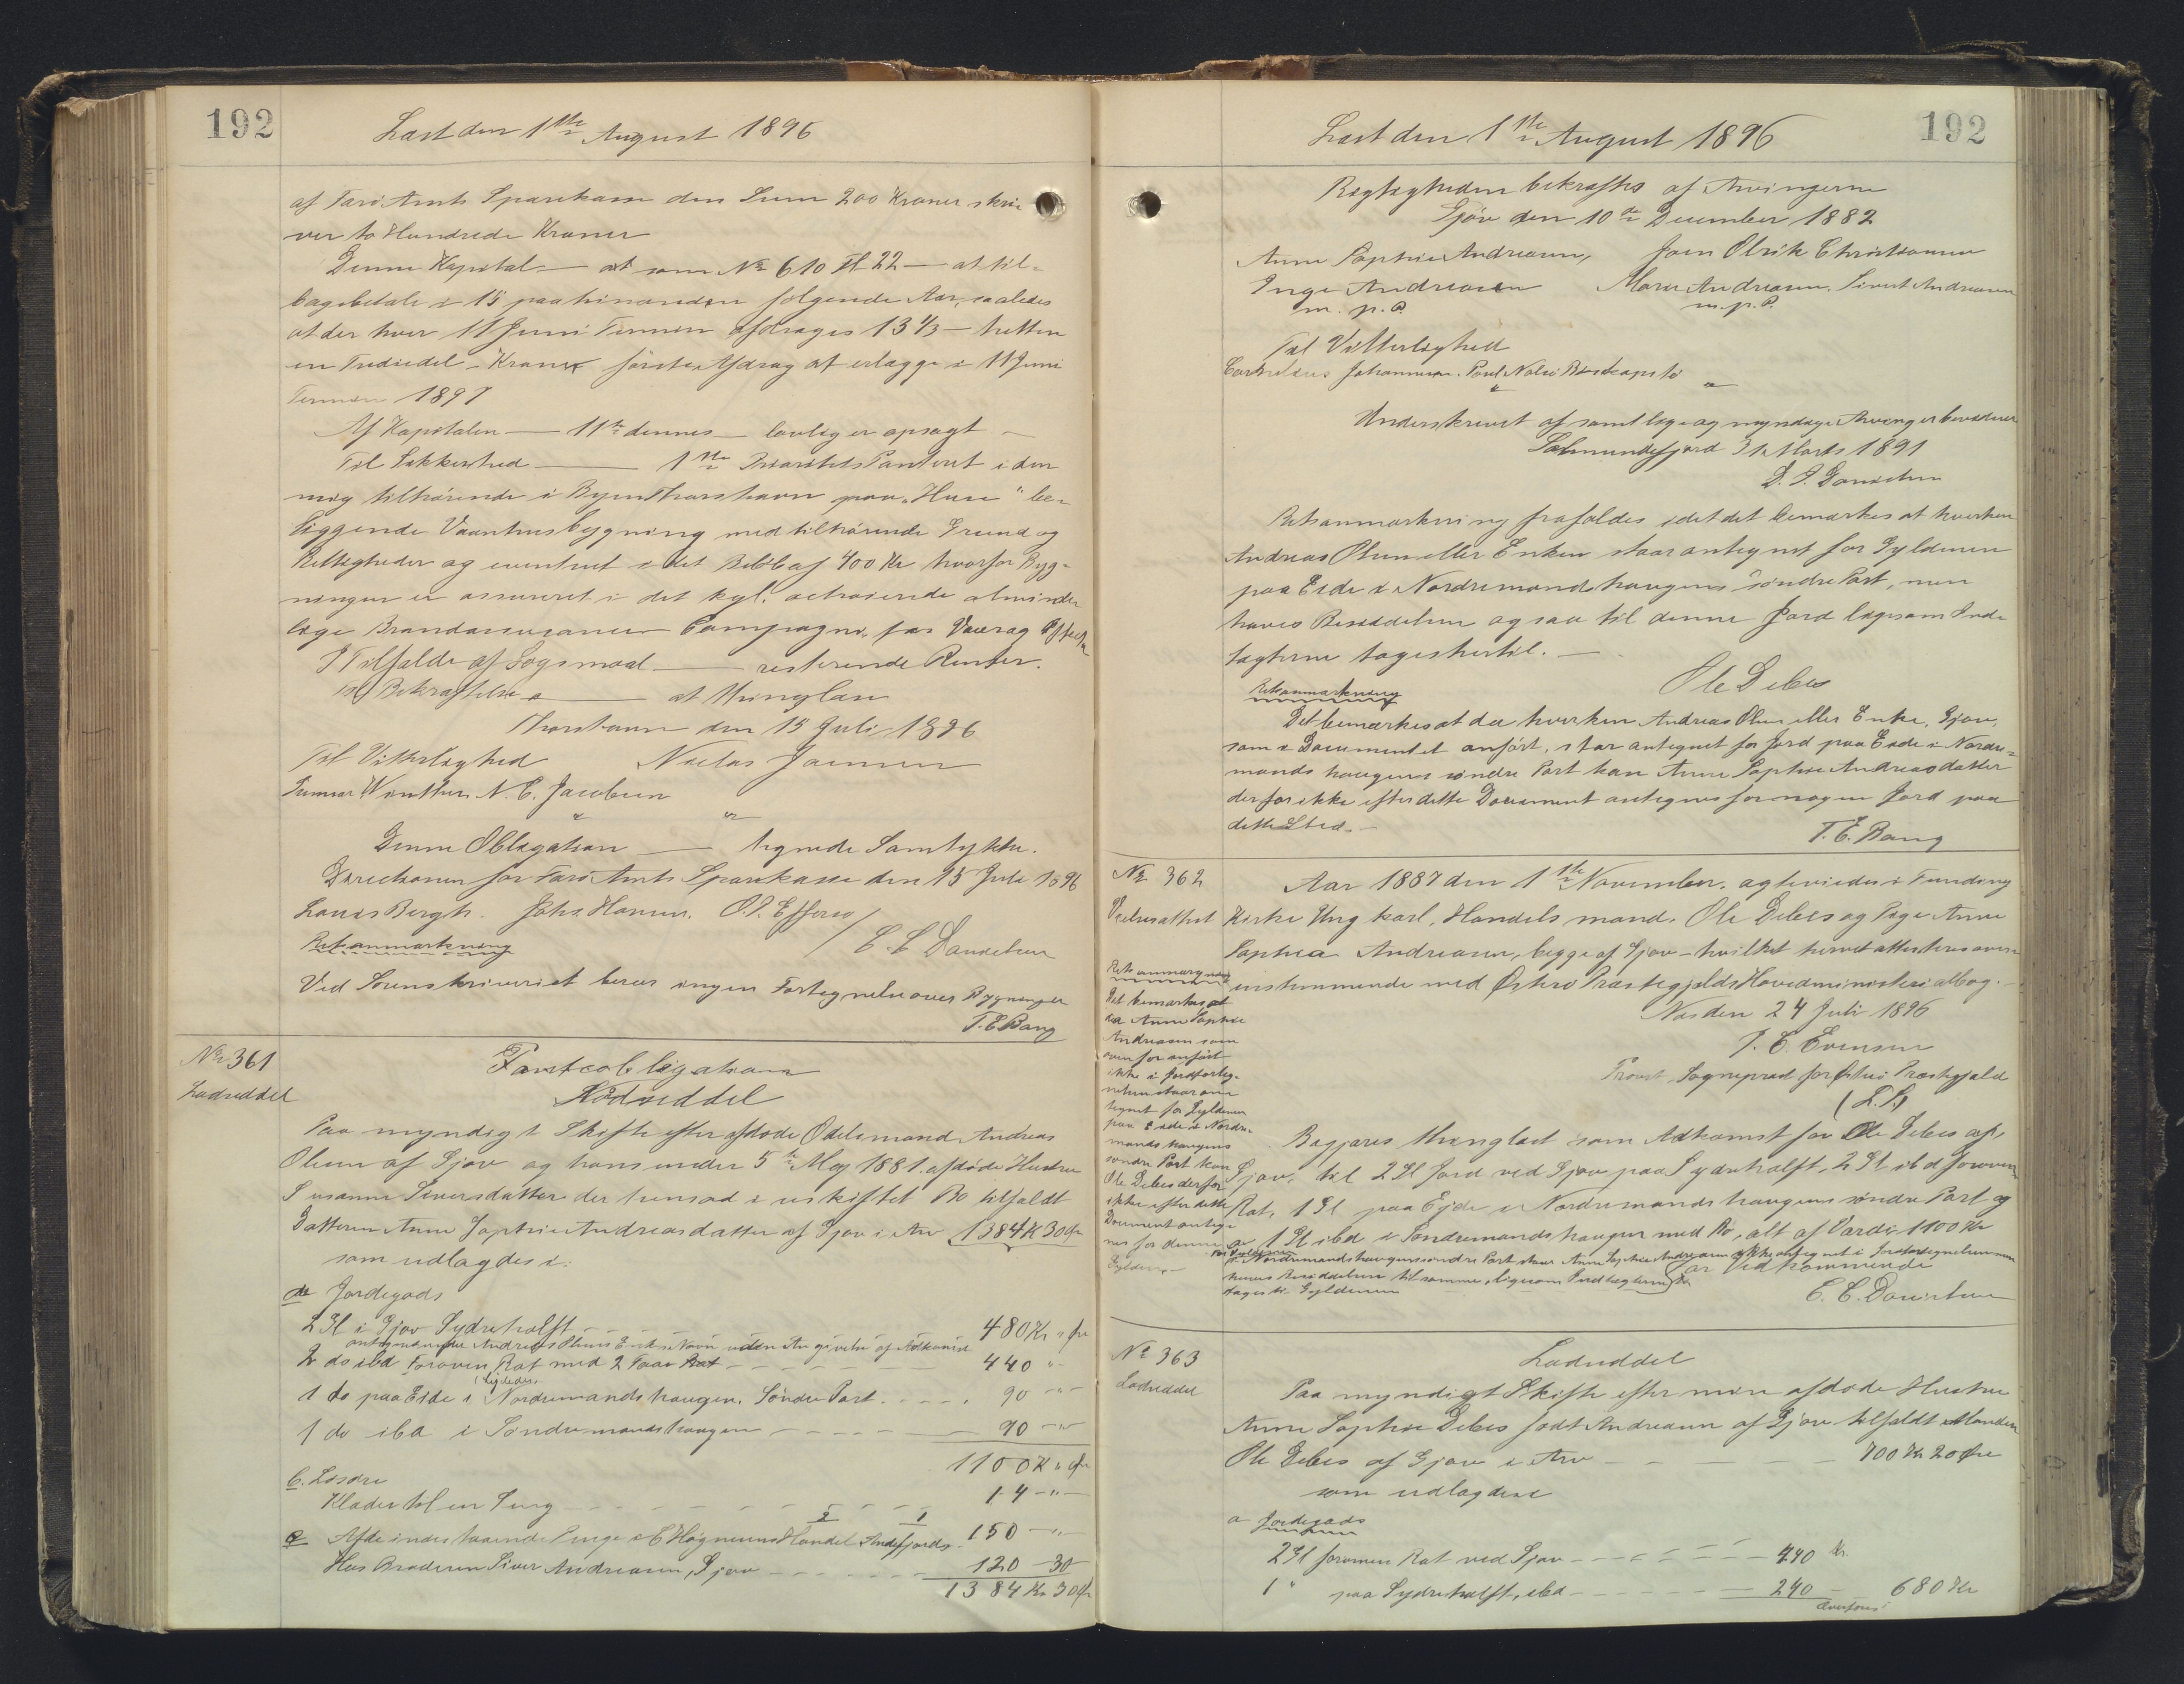 192
Læst den 1ste August 1896
af Færø Amts Sparekasse den Sum 200 Kroner skri-
ver to Hundrede Kroner
Denne Kapital — at som No 610 Fl 22 — at til-
bagebetale i 15 paa hinanden følgende Aar, saaledes
at der hver 11 Juni Termin afdrages 13 1/3 — tretten
en Trediedel — Kroner første Afdrag at erlægge i 11 Juni
Termin 1897
Af Kapitalen — 11te dennes — lovlig er opsagt —
Til Sikkerhed — 1ste Prioritets Panteret i den
mig tilhørende i Byen Thorshavn paa „Huse“ be-
liggende Vaanhusbygning med tilhørende Grund og
Rettigheder og eventuel i det Beløb af 400 Kr hvorfor Byg-
ningen er assureret i det kgl. octroierede alminde
lige Brandassurance Compagni, for Varer og Effecter
I Tilfælde af Søgsmaal — resterende Renter.
Til Bekræftelse — at thinglæse
Thorshavn den 15 Juli 1896
Til Vitterlighed Niclas Joensen
Winther N. C. Jacobsen
Denne Obligation — tegnede Samtykke.
Directionen for Færø Amts Sparekasse den 15 Juli 1896
Louis Bergh. Johs. Hansen. O. P. Effersø / C. C. Danielsen
Retsanmærkning
Ved Sorenskriveriet beror ingen Fortegnelse over Bygninger
T. E. Bang
No 361
Lodseddel
Panteobligation
Lodseddel
Paa myndigt Skifte efter afdøde Odelsmand Andreas
Olsen af Gjov og hans under 5te Maj 1881 afdøde Hustru
Susanne Siversdatter der hensad i uskiftet Bo tilfaldt
Datteren Anne Sophie Andreasdatter af Gjov i Arv 1384 K 30 Øre
som udlagdes i:
a Jordegods
2 Gl i Gjov Sydrehalft 480 Kr „ Øre
antegnede paa Andreas Olsens Enkes Navn uden Angivelse af Adkomst
2 do ibd Foroven Rat med 2 Faar 440 „
ligeledes
1 do paa Eide i Nordremandshaugen, Søndre Part 90 „
1 do ibd i Søndremandshaugen 90 „
1100 K „ Øre
b. Løsøre
Klæder til en Seng 14 „
c Af de indestaaende Penge i C Høgnesens Handel Sundefjords 150 „
Hos Broderen Siver Andreasen, Gjov 120 30
1384 Kr 30 Øre
Læst den 1ste August 1896
192
Rigtigheden bekræftes af Arvingerne
Gjov den 10de December 1882
Anne Sophie Andreasen, Joen Olrik Christiansen
Inge Andreasen Maren Andreasen. Sivert Andreasen
m. p. P. m. p. P.
Til Vitterlighed
Cornelius Johannesen. Poul Nolsøe
Underskrevet af samtlige og myndige Arvinger bevidner
Selmundefjord 31 Marts 1891
D. J. Danielsen
Retsanmærkning frafaldes idet det bemærkes at hverken
Andreas Olsen eller Enken staar antegnet for Gyldenen
paa Eide i Nordremandshaugens søndre Part, men
haves Besiddelsen ogsaa til denne Jord ligesom Ind-
tægterne tages hertil. —
Ole Debes
Retsanmærkning
Det bemærkes at da hverken Andreas Olsen eller Enke, Gjov,
som i Documentet anført, staar antegnet for Jord paa Eide i Nordre-
mandshaugens søndre Part kan Anne Sophie Andreasdatter
derfor ikke efter dette Document antegnes for nogen Jord paa
dette Sted. —
T. E. Bang
No 362
Vielsesattest
Aar 1887 den 1ste November, agteviedes i Funding
Kirke Ungkarl, Handelsmand Ole Debes og Pige Anne
Sophie Andreasen, begge af Gjov — hvilket herved attesteres over-
ensstemmende med Østerø Præstegjelds Hovedministerialbog. —
Næs den 24 Juli 1896
J. C. Evensen
Provst, Sognepræst for Østerø Præstegjæld
(L. S.)
Retsanmærkning
Det bemærkes at
da Anne Sophie
Andreasen som
ovenfor anført
ikke i Jordforteg-
nelsen staar an-
tegnet for Gyldenen
paa Eide i Nordre-
mandshaugens
søndre Part kan
Ole Debes derfor
ikke efter dette
Document anteg-
nes for denne
Gylden. —
Begjæres thinglæst som Adkomst for Ole Debes af
Gjov, til 2 Gl Jord ved Gjov paa Sydrehalft, 2 Gl ibd foroven
Rat, 1 Gl paa Ejde i Nordremandshaugens søndre Part og
1 Gl ibd i Søndremandshaugen med Bø, alt af Værdi 1100 Kr
For Gyldenen
i Nordremandshaugens søndre Part staar Anne Sophie Andreasen ikke antegnet i Jordfortegnelsen men
haves Besiddelsen til samme, ligesom Indtægterne
tages til Gyldenen
Vedkommende
C. C. Danielsen
No 363
Lodseddel
Lodseddel
Paa myndigt Skifte efter min afdøde Hustru
Anne Sophie Debes født Andreasen af Gjov tilfaldt Manden
Ole Debes af Gjov i Arv 700 Kr 20 Øre
som udlagdes i
a Jordegods
2 Gl foroven Rat ved Gjov 440 Kr.
1 „ paa Sydrehalft, ibd 240 — 680 Kr
Overføres